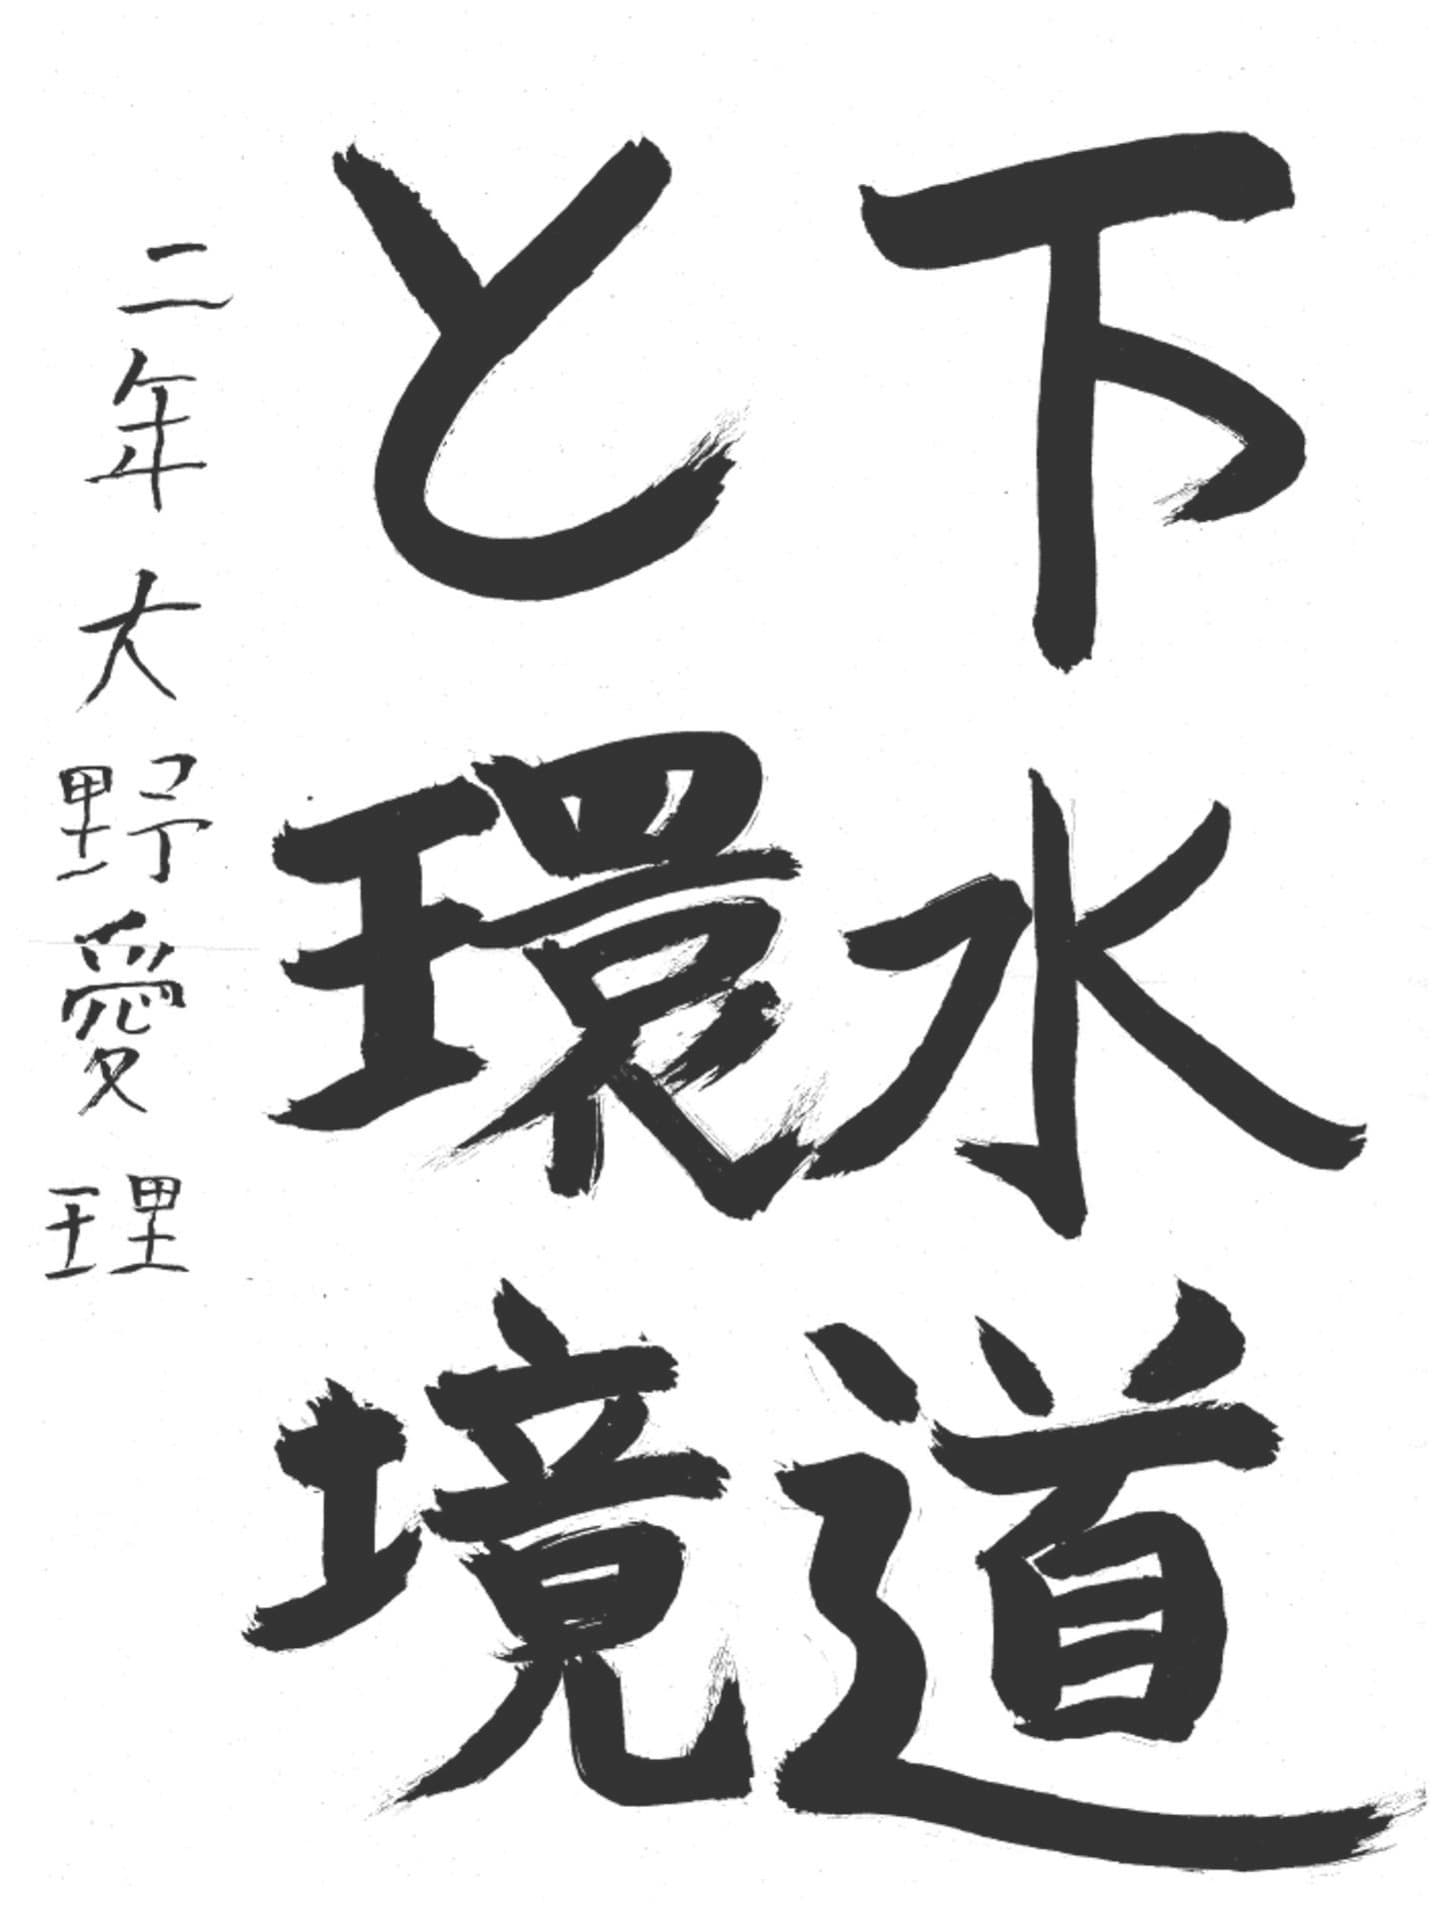 下水道
と環境
二年大野愛理